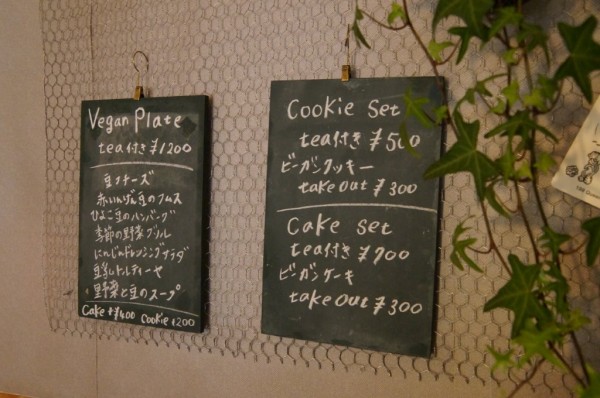 Vegan Plate
tea付き ¥1200
豆チーズ
赤いんげん豆のフムス
ひよこ豆のハンバーグ
季節の野菜グリル
にんじんドレッシングサラダ
豆乳トルティーヤ
野菜と豆のスープ
Cake +¥400 Cookie +200
Cookie Set
tea付き ¥500
ビーガンクッキー
take out ¥300
Cake set
tea付き ¥700
ビーガンケーキ
take out ¥300